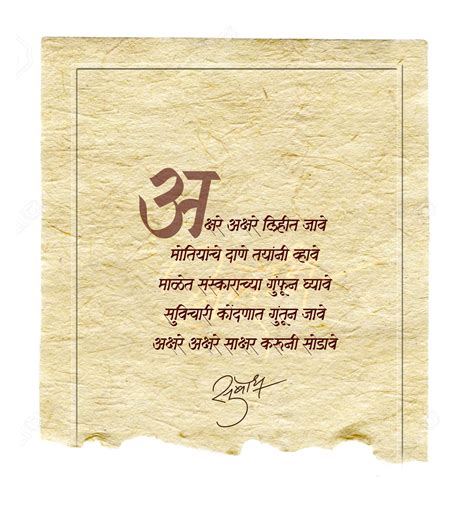 अक्षरे अक्षरे लिहीत जावे
मोतियांचे दाणे तयांनी व्हावे
माळेत संस्काराच्या गुंफून घ्यावे
सुविचारी कोंदणात गुंतून जावे
अक्षरे अक्षरे साक्षर करुनी सोडावे
सुबोध